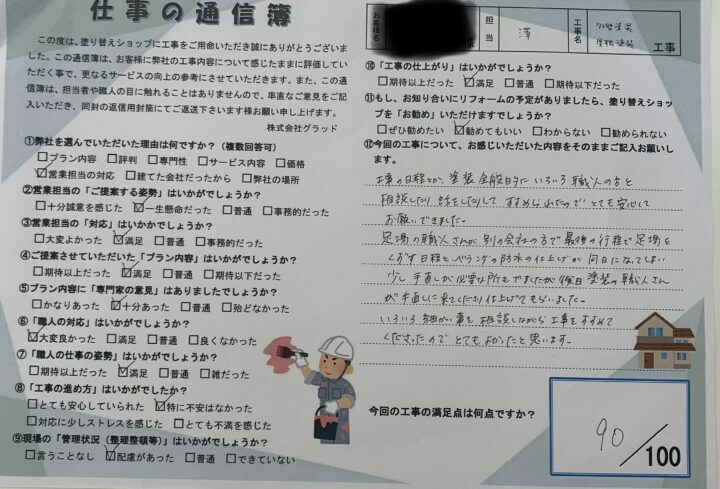 仕事の通信簿
お客様名
様
担当
澤
工事名
外壁塗装
屋根塗装
工事
この度は、塗り替えショップに工事をご用命いただき誠にありがとうございま
した。この通信簿は、お客様に弊社の工事内容について感じたままに評価してい
ただく事で、更なるサービスの向上の参考にさせていただきます。また、この通
信簿は、担当者や職人の目に触れることはありませんので、率直なご意見をご記
入いただき、同封の返信用封筒にてご返送下さいます様お願い申し上げます。
株式会社グラッド
①弊社を選んでいただいた理由は何ですか?(複数回答可)
□プラン内容 □評判 □専門性 □サービス内容 □価格
☑営業担当の対応 □建てた会社だったから □弊社の場所
②営業担当の「ご提案する姿勢」はいかがでしょうか?
□十分誠意を感じた ☑一生懸命だった □普通 □事務的だった
③営業担当の「対応」はいかがでしょうか?
□大変よかった ☑満足 □普通 □事務的だった
④ご提案させていただいた「プラン内容」はいかがでしょうか?
□期待以上だった ☑満足 □普通 □期待以下だった
⑤プラン内容に「専門家の意見」はありましたでしょうか?
□かなりあった ☑十分あった □普通 □殆どなかった
⑥「職人の対応」はいかがでしょうか?
☑大変良かった □満足 □普通 □良くなかった
⑦「職人の仕事の姿勢」はいかがでしょうか?
□期待以上だった ☑満足 □普通 □雑だった
⑧「工事の進め方」はいかがでしたか?
□とても安心していられた ☑特に不安はなかった
□対応に少しストレスを感じた □とても不満を感じた
⑨現場の「管理状況(整理整頓等)」はいかがでしょうか?
□言うことなし ☑配慮があった □普通 □できていない
⑩「工事の仕上がり」はいかがでしょうか?
□期待以上だった ☑満足 □普通 □期待以下だった
⑪もし、お知り合いにリフォームの予定がありましたら、塗り替えショッ
プを「お勧め」いただけますでしょうか?
□ぜひ勧めたい ☑勧めてもいい □わからない □勧められない
⑫今回の工事について、お感じいただいた内容をそのままご記入お願いし
ます。
工事の日程とか、塗装全般的にいろいろ職人の方と
相談したり話をしたりして すすめられたのでとても安心して
お願いできました。
足場の職人さんが別の会社の方で最後の行程で足場を
くずす日程とベランダの防水の仕上げが同日になってしまい
少し手直しが必要な所もでましたが後日塗装の職人さん
が手直しに来てくださり仕上げてもらいました。
いろいろ細かい事を相談しながら工事をすすめて
くださったのでとてもよかったと思います。
今回の工事の満足点は何点ですか?
90/100